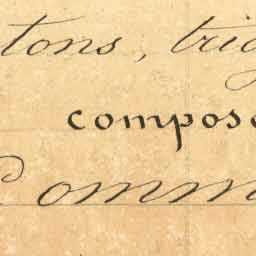 tons, trig
compose
Comm